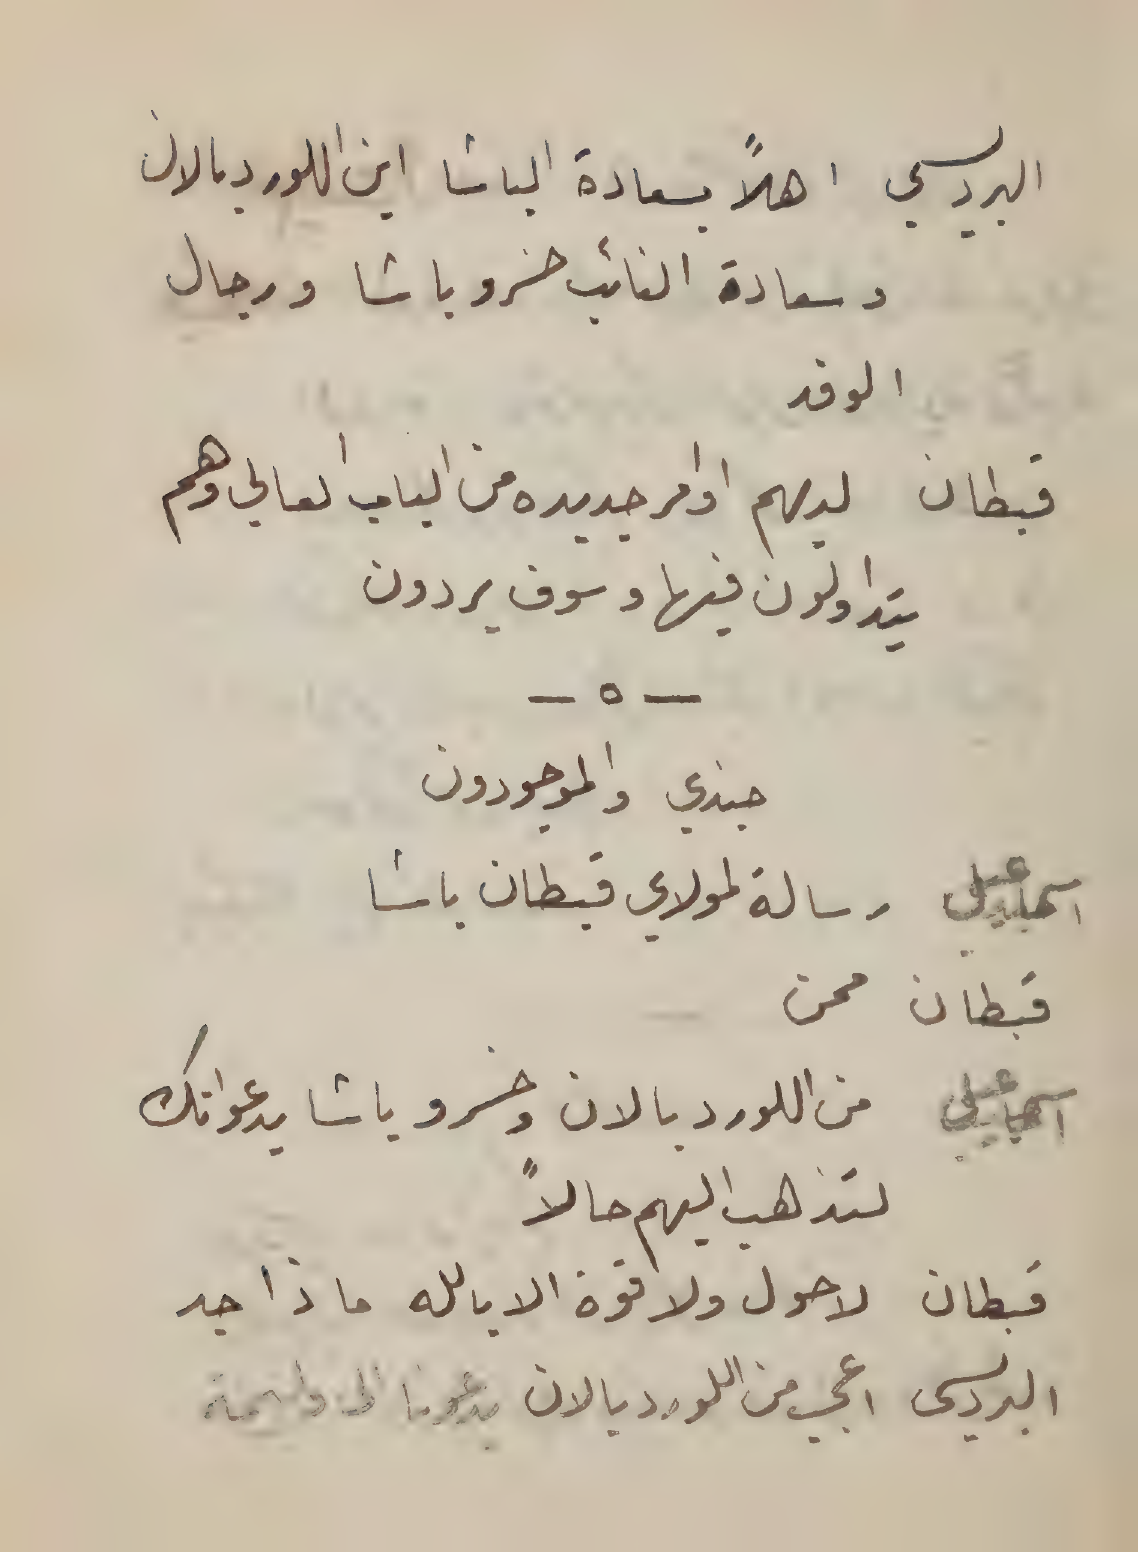 البرديسي اهلاً بسعادة الباشا اين اللورد بالان
وسعادة النائب خسرو باشا ورجال
الوفد
قبطان لديهم اوامر جديده من الباب العالي وهم
يتداولون فيها وسوف يردون
— ٥ —
جندي والموجودون
رسالة لمولاي قبطان باشا
قبطان ممن
من اللورد بالان وخسرو باشا يدعوانك
لتذهب اليهم حالاً
قبطان لا حول ولا قوة الا بالله ماذا جد
البرديسي اعجب من اللورد بالان يدعونا الى وليمة